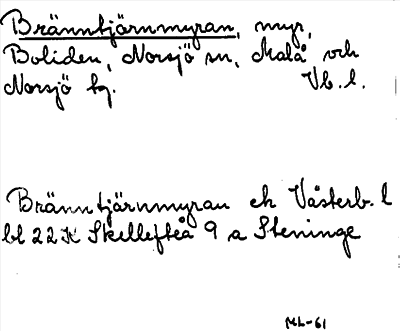 Bränntjärnmyran, myr,
Boliden, Norsjö sn, Malå och
Norsjö tg. Vb. l.
Bränntjärnmyran ek Västerb. l
bl 22 K Skellefteå 9 a Steninge
ML-61